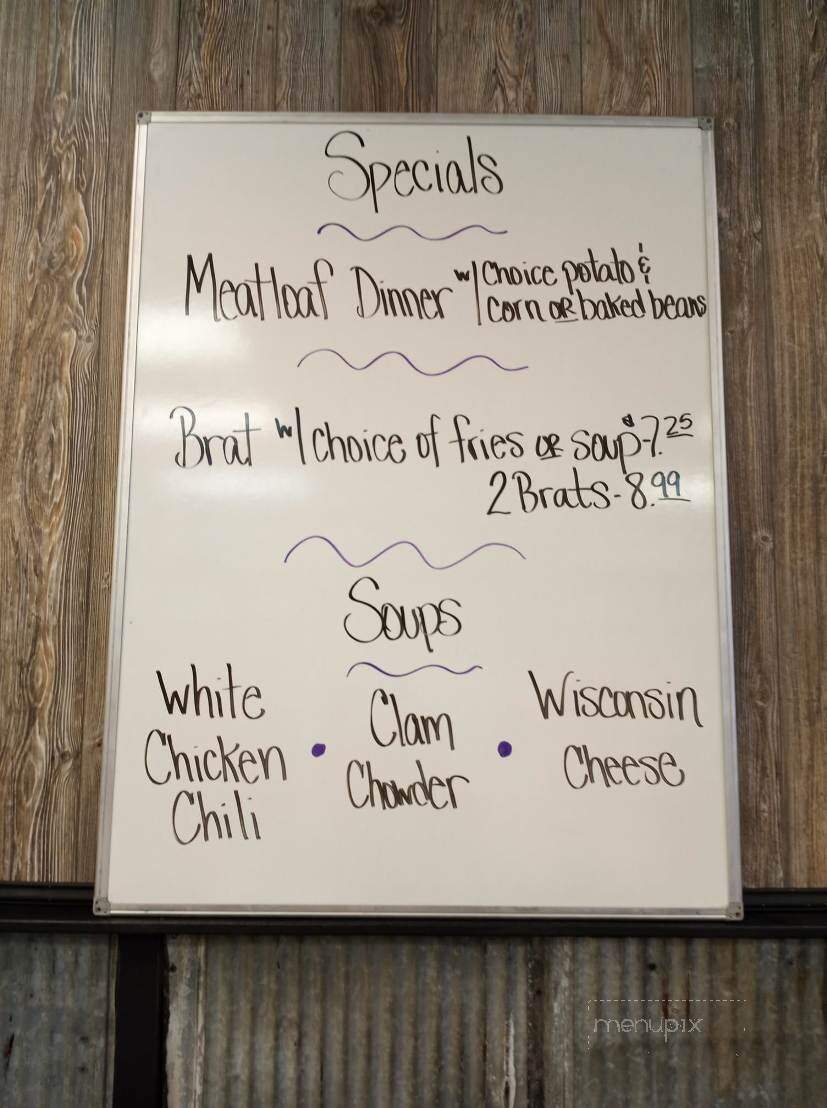 Specials
Meatloaf Dinner w/ choice potato &
corn or baked beans
Brat w/ choice of fries or soup - $7.25
2 Brats - 8.99
Soups
White Chicken Chili • Clam Chowder • Wisconsin Cheese
menupix